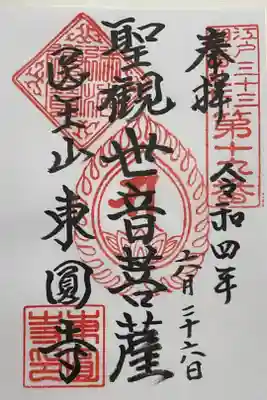 江戸三十三
第十九番
奉拝
令和四年
月二十六日
聖觀世音菩薩
医王山東圓寺
東圓寺印